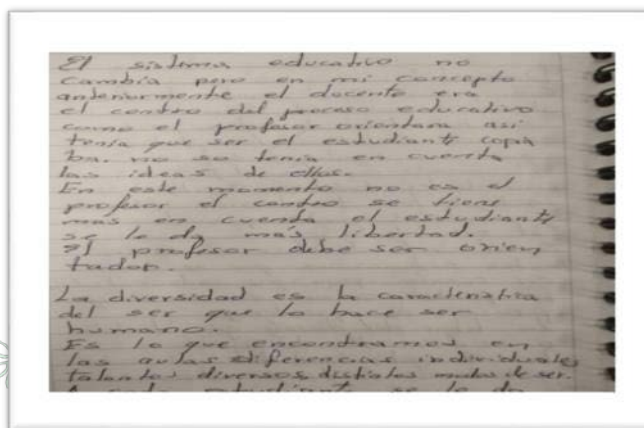 El sistema educativo no
cambia pero en mi concepto
anteriormente el docente era
el centro del proceso educativo
como el profesor orientara asi
tenía que ser el estudiante copia
ba. no se tenía en cuenta
las ideas de ellos.
En este momento no es el
profesor el centro se tiene
mas en cuenta el estudiante
se le da más libertad.
El profesor debe ser orien
tador.
La diversidad es la caracteristica
del ser que lo hace ser
humano.
Es lo que encontramos en
las aulas diferencias individuales
talentos diversos, distintos modos de ser.
A cada estudiante se le da